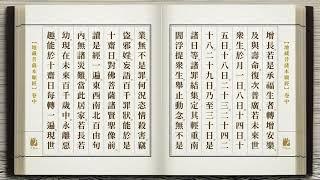 【地藏菩薩本願經】卷中
增長若是承福生者轉增安樂
及與壽命復次普廣若未來世
衆生於月一日八日十四日十
五日十八日二十三二十四二
十八二十九日乃至三十日是
諸日等諸罪結集定其輕重南
閻浮提衆生舉止動念無不是
業無不是罪何況恣情殺害竊
盜邪婬妄語百千罪狀能於是
十齋日對佛菩薩諸賢聖像前
讀是經一遍東西南北百由旬
內無諸災難當此居家若長若
幼現在未來百千歲中永離惡
趣能於十齋日每轉一遍現世
【地藏菩薩本願經】卷中